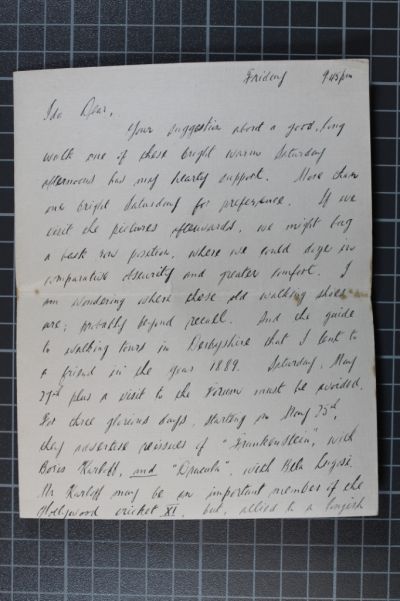 Friday 9.45pm
Ida Dear,
Your suggestion about a good, long
walk one of these bright warm Saturday
afternoons has my hearty support. More than
one bright Saturday for preference. If we
visit the pictures afterwards, we might bag
a back row position, where we could doze in
comparative obscurity and greater comfort. I
am wondering where those old walking shoes
are; probably beyond recall. And the guide
to walking tours in Derbyshire that I lent to
a friend in the year 1889. Saturday, May
27th plus a visit to the Forum must be avoided.
For three glorious days, starting on May 25th,
they advertise reissues of "Frankenstein", with
Boris Karloff, and "Dracula", with Bela Lugosi.
Mr Karloff may be an important member of the
Hollywood cricket XI, but, allied to a